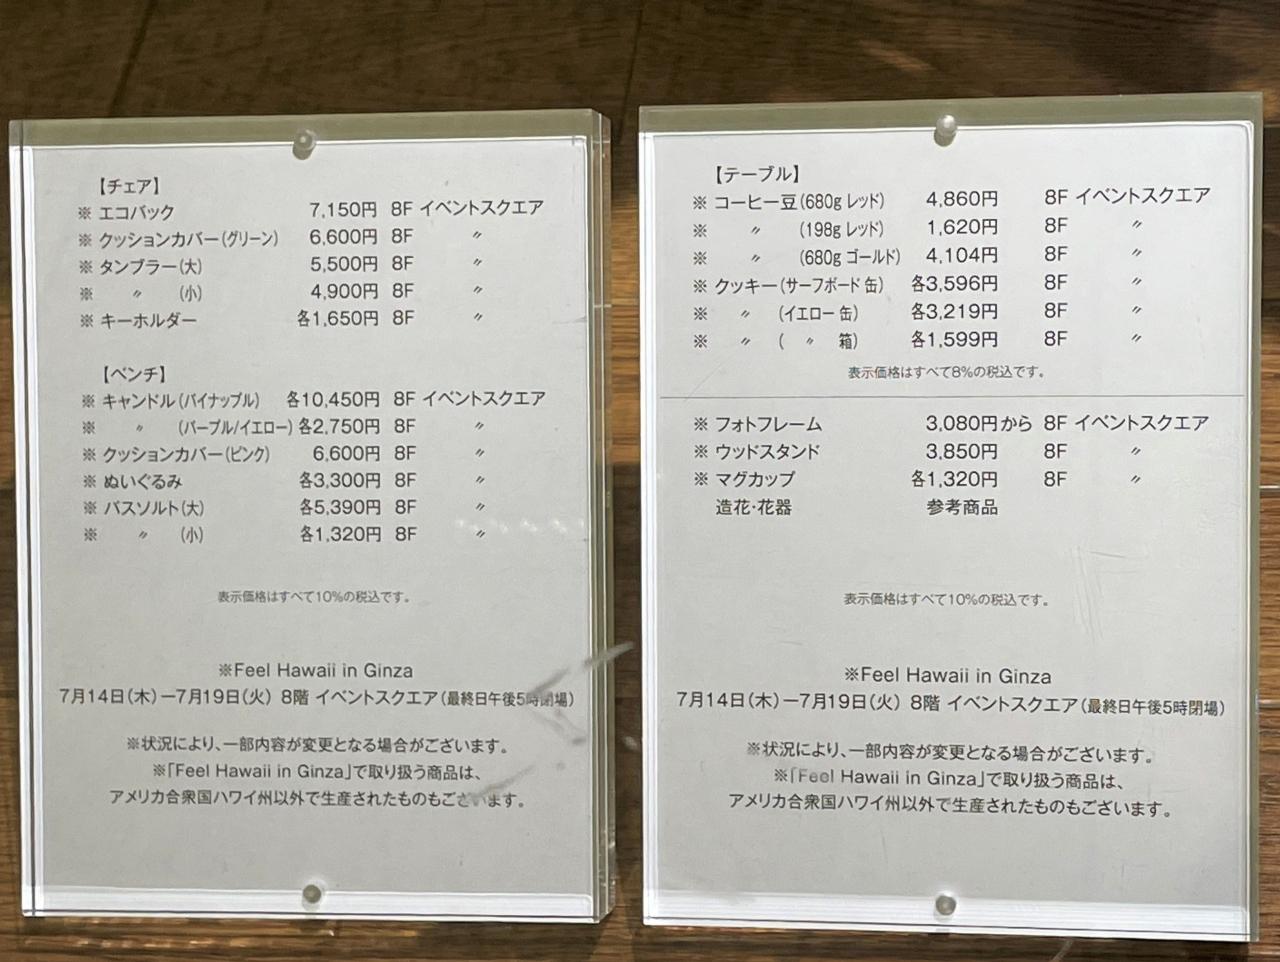 【チェア】
※ エコバック 7,150円 8F イベントスクエア
※ クッションカバー(グリーン) 6,600円 8F 〃
※ タンブラー(大) 5,500円 8F 〃
※ 〃 (小) 4,900円 8F 〃
※ キーホルダー 各1,650円 8F 〃
【ベンチ】
※ キャンドル(パイナップル) 各10,450円 8F イベントスクエア
※ 〃 (パープル/イエロー) 各2,750円 8F 〃
※ クッションカバー(ピンク) 6,600円 8F 〃
※ ぬいぐるみ 各3,300円 8F 〃
※ バスソルト(大) 各5,390円 8F 〃
※ 〃 (小) 各1,320円 8F 〃
表示価格はすべて10%の税込です。
※Feel Hawaii in Ginza
7月14日(木)―7月19日(火) 8階 イベントスクエア(最終日午後5時閉場)
※状況により、一部内容が変更となる場合がございます。
※「Feel Hawaii in Ginza」で取り扱う商品は、
アメリカ合衆国ハワイ州以外で生産されたものもございます。
【テーブル】
※ コーヒー豆(680g レッド) 4,860円 8F イベントスクエア
※ 〃 (198g レッド) 1,620円 8F 〃
※ 〃 (680g ゴールド) 4,104円 8F 〃
※ クッキー(サーフボード缶) 各3,596円 8F 〃
※ 〃 (イエロー缶) 各3,219円 8F 〃
※ 〃 ( 〃 箱) 各1,599円 8F 〃
表示価格はすべて8%の税込です。
※ フォトフレーム 3,080円から 8F イベントスクエア
※ ウッドスタンド 3,850円 8F 〃
※ マグカップ 各1,320円 8F 〃
造花・花器 参考商品
表示価格はすべて10%の税込です。
※Feel Hawaii in Ginza
7月14日(木)―7月19日(火) 8階 イベントスクエア(最終日午後5時閉場)
※状況により、一部内容が変更となる場合がございます。
※「Feel Hawaii in Ginza」で取り扱う商品は、
アメリカ合衆国ハワイ州以外で生産されたものもございます。